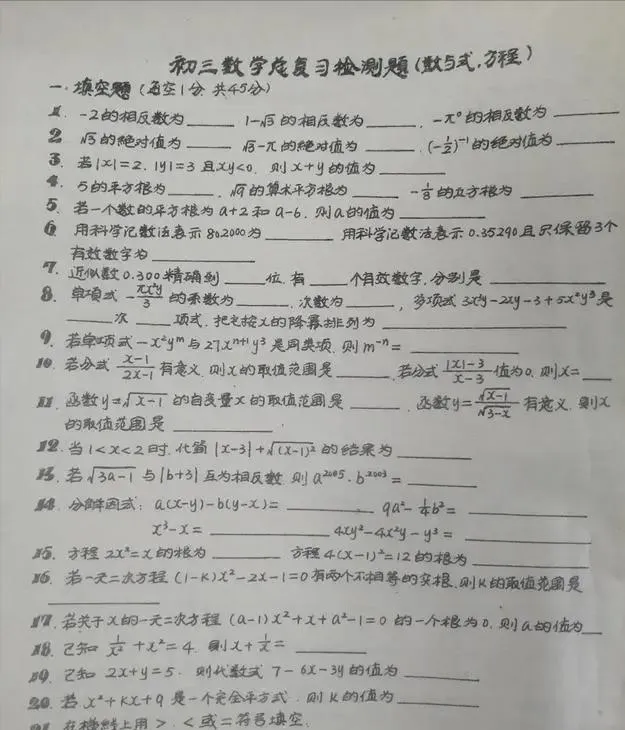 初三数学总复习检测题(数与式,方程)
一.填空题(每空1分 共45分)
1. -2的相反数为____ 1-√3的相反数为____, -π⁰的相反数为____
2. √3的绝对值为____ √3-π的绝对值为____, (-1/2)⁻¹的绝对值为____
3. 若|x|=2, |y|=3且xy<0, 则x+y的值为____
4. 5的平方根为____, √9的算术平方根为____ -1/8的立方根为____
5. 若一个数的平方根为a+2和a-6, 则a的值为____
6. 用科学记数法表示802000为____ 用科学记数法表示0.35290且只保留3个
有效数字为____
7. 近似数0.300精确到____位, 有____个有效数字, 分别是____
8. 单项式-πx²y/3的系数为____, 次数为____, 多项式3x⁴y-2xy-3+5x²y³是
____次____项式, 把它按x的降幂排列为____
9. 若单项式-x²yᵐ与27xⁿ⁺¹y³是同类项, 则m⁻ⁿ=____
10. 若分式 x-1/2x-1 有意义, 则x的取值范围是____, 若分式 |x|-3/x-3 值为0, 则x=____
11. 函数y=√x-1的自变量x的取值范围是____, 函数y=√x-1/√3-x有意义, 则x
的取值范围是____
12. 当1<x<2时, 化简|x-3|+√(x-1)²的结果为____
13. 若√3a-1与|b+3|互为相反数, 则a²⁰⁰⁵·b²⁰⁰³=____
14. 分解因式: a(x-y)-b(y-x)=____ 9a²-1/4b²=____
x³-x=____ 4xy²-4x²y-y³=____
15. 方程2x²=x的根为____ 方程4(x-1)²=12的根为____
16. 若一元二次方程(1-K)x²-2x-1=0有两个不相等的实根, 则K的取值范围是
____
17. 若关于x的一元二次方程(a-1)x²+x+a²-1=0的一个根为0, 则a的值为__
18. 已知 1/x²+x²=4 则x+1/x=____
19. 已知 2x+y=5. 则代数式7-6x-3y的值为____
20. 若x²+Kx+9是一个完全平方式, 则K的值为____
21. 在横线上用>、<或=符号填空.